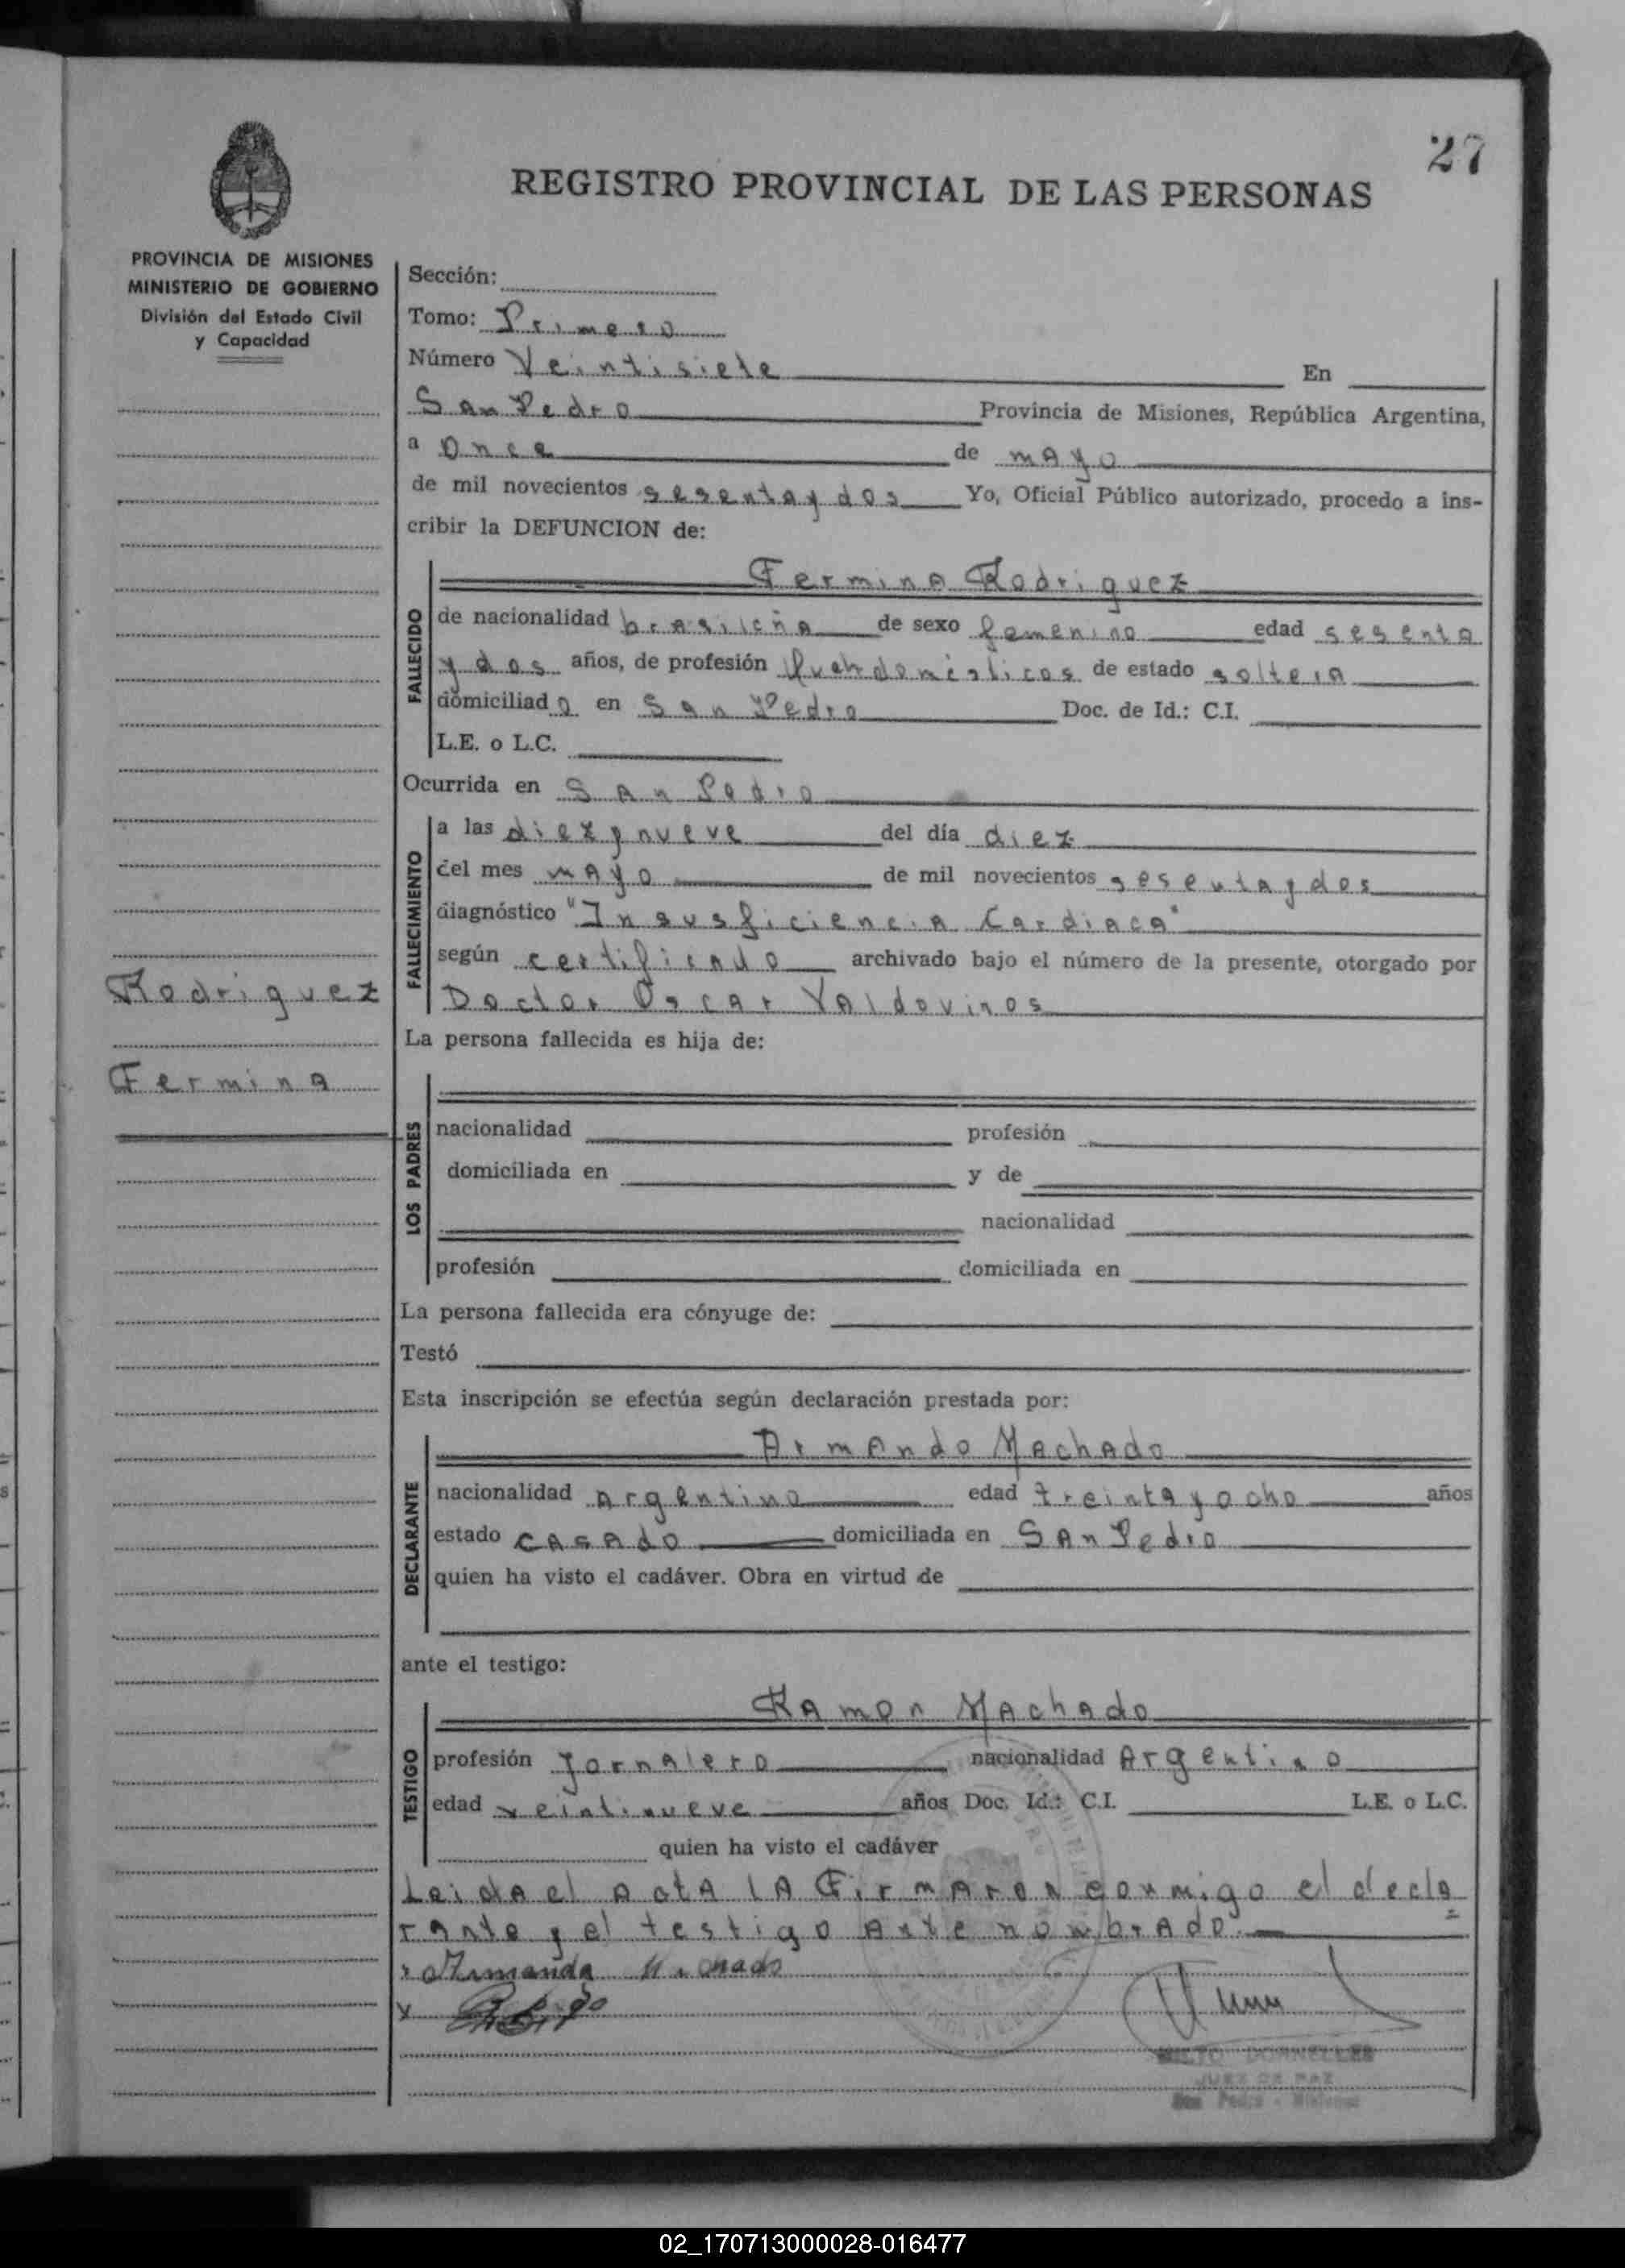 27
REGISTRO PROVINCIAL DE LAS PERSONAS
PROVINCIA DE MISIONES
MINISTERIO DE GOBIERNO
División del Estado Civil
y Capacidad
Rodriguez
Fermina
Sección:
Tomo: Primero
Número Veintisiete En
San Pedro Provincia de Misiones, República Argentina,
a once de mayo
de mil novecientos sesenta y dos Yo, Oficial Público autorizado, procedo a ins-
cribir la DEFUNCION de:
FALLECIDO
Fermina Rodriguez
de nacionalidad brasileña de sexo femenino edad sesenta
y dos años, de profesión domésticos de estado soltera
domiciliad o en San Pedro Doc. de Id.: C.I.
L.E. o L.C.
Ocurrida en San Pedro
FALLECIMIENTO
a las diez y nueve del día diez
del mes mayo de mil novecientos sesenta y dos
diagnóstico "Insusficiencia Cardiaca"
según certificado archivado bajo el número de la presente, otorgado por
Doctor Oscar Valdovinos
La persona fallecida es hija de:
LOS PADRES
nacionalidad profesión
domiciliada en y de
nacionalidad
profesión domiciliada en
La persona fallecida era cónyuge de:
Testó
Esta inscripción se efectúa según declaración prestada por:
DECLARANTE
Armando Machado
nacionalidad argentino edad treinta y ocho años
estado casado domiciliada en San Pedro
quien ha visto el cadáver. Obra en virtud de
ante el testigo:
TESTIGO
Ramon Machado
profesión Jornalero nacionalidad Argentino
edad veintinueve años Doc. Id.: C.I. L.E. o L.C.
quien ha visto el cadáver
Leida el acta la Firmaron conmigo el decla
rante y el testigo ante nombrado.
x Armando Machado
x
DORNELLES
JUEZ DE PAZ
San Pedro - Misiones
02_170713000028-016477